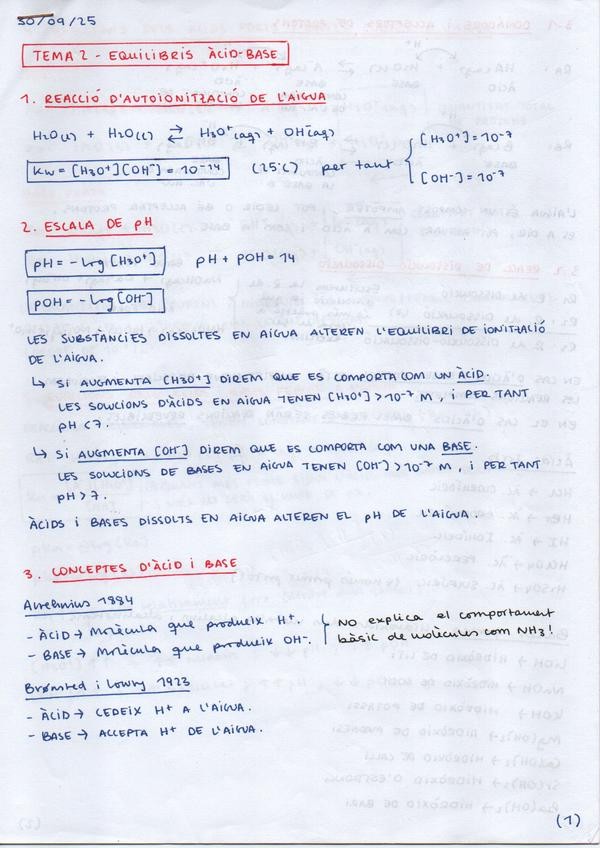 30/09/25
TEMA 2 - EQUILIBRIS ÀCID-BASE
1. REACCIÓ D'AUTOIONITZACIÓ DE L'AIGUA
H₂O(l) + H₂O(l) ⇄ H₃O⁺(aq) + OH⁻(aq)
Kw = [H₃O⁺][OH⁻] = 10⁻¹⁴ (25ºC) per tant { [H₃O⁺] = 10⁻⁷
[OH⁻] = 10⁻⁷
2. ESCALA DE pH
pH = -log [H₃O⁺] pH + pOH = 14
pOH = -log [OH⁻]
LES SUBSTÀNCIES DISSOLTES EN AIGUA ALTEREN L'EQUILIBRI DE IONITZACIÓ
DE L'AIGUA.
↳ SI AUGMENTA [H3O+] DIREM QUE ES COMPORTA COM UN ÀCID.
LES SOLUCIONS D'ÀCIDS EN AIGUA TENEN [H₃O⁺] > 10⁻⁷ M, i PER TANT
pH < 7.
↳ SI AUGMENTA [OH⁻] DIREM QUE ES COMPORTA COM UNA BASE.
LES SOLUCIONS DE BASES EN AIGUA TENEN [OH⁻] > 10⁻⁷ M, i PER TANT
pH > 7.
ÀCIDS i BASES DISSOLTS EN AIGUA ALTEREN EL pH DE L'AIGUA.
3. CONCEPTES D'ÀCID i BASE
Arrehnius 1884
- ÀCID → Molècula que produeix H⁺.
- BASE → Molècula que produeix OH⁻.
No explica el comportament
bàsic de molècules com NH₃!
Brønsted i Lowry 1923
- ÀCID → CEDEIX H⁺ A L'AIGUA.
- BASE → ACCEPTA H⁺ DE L'AIGUA.
(1)